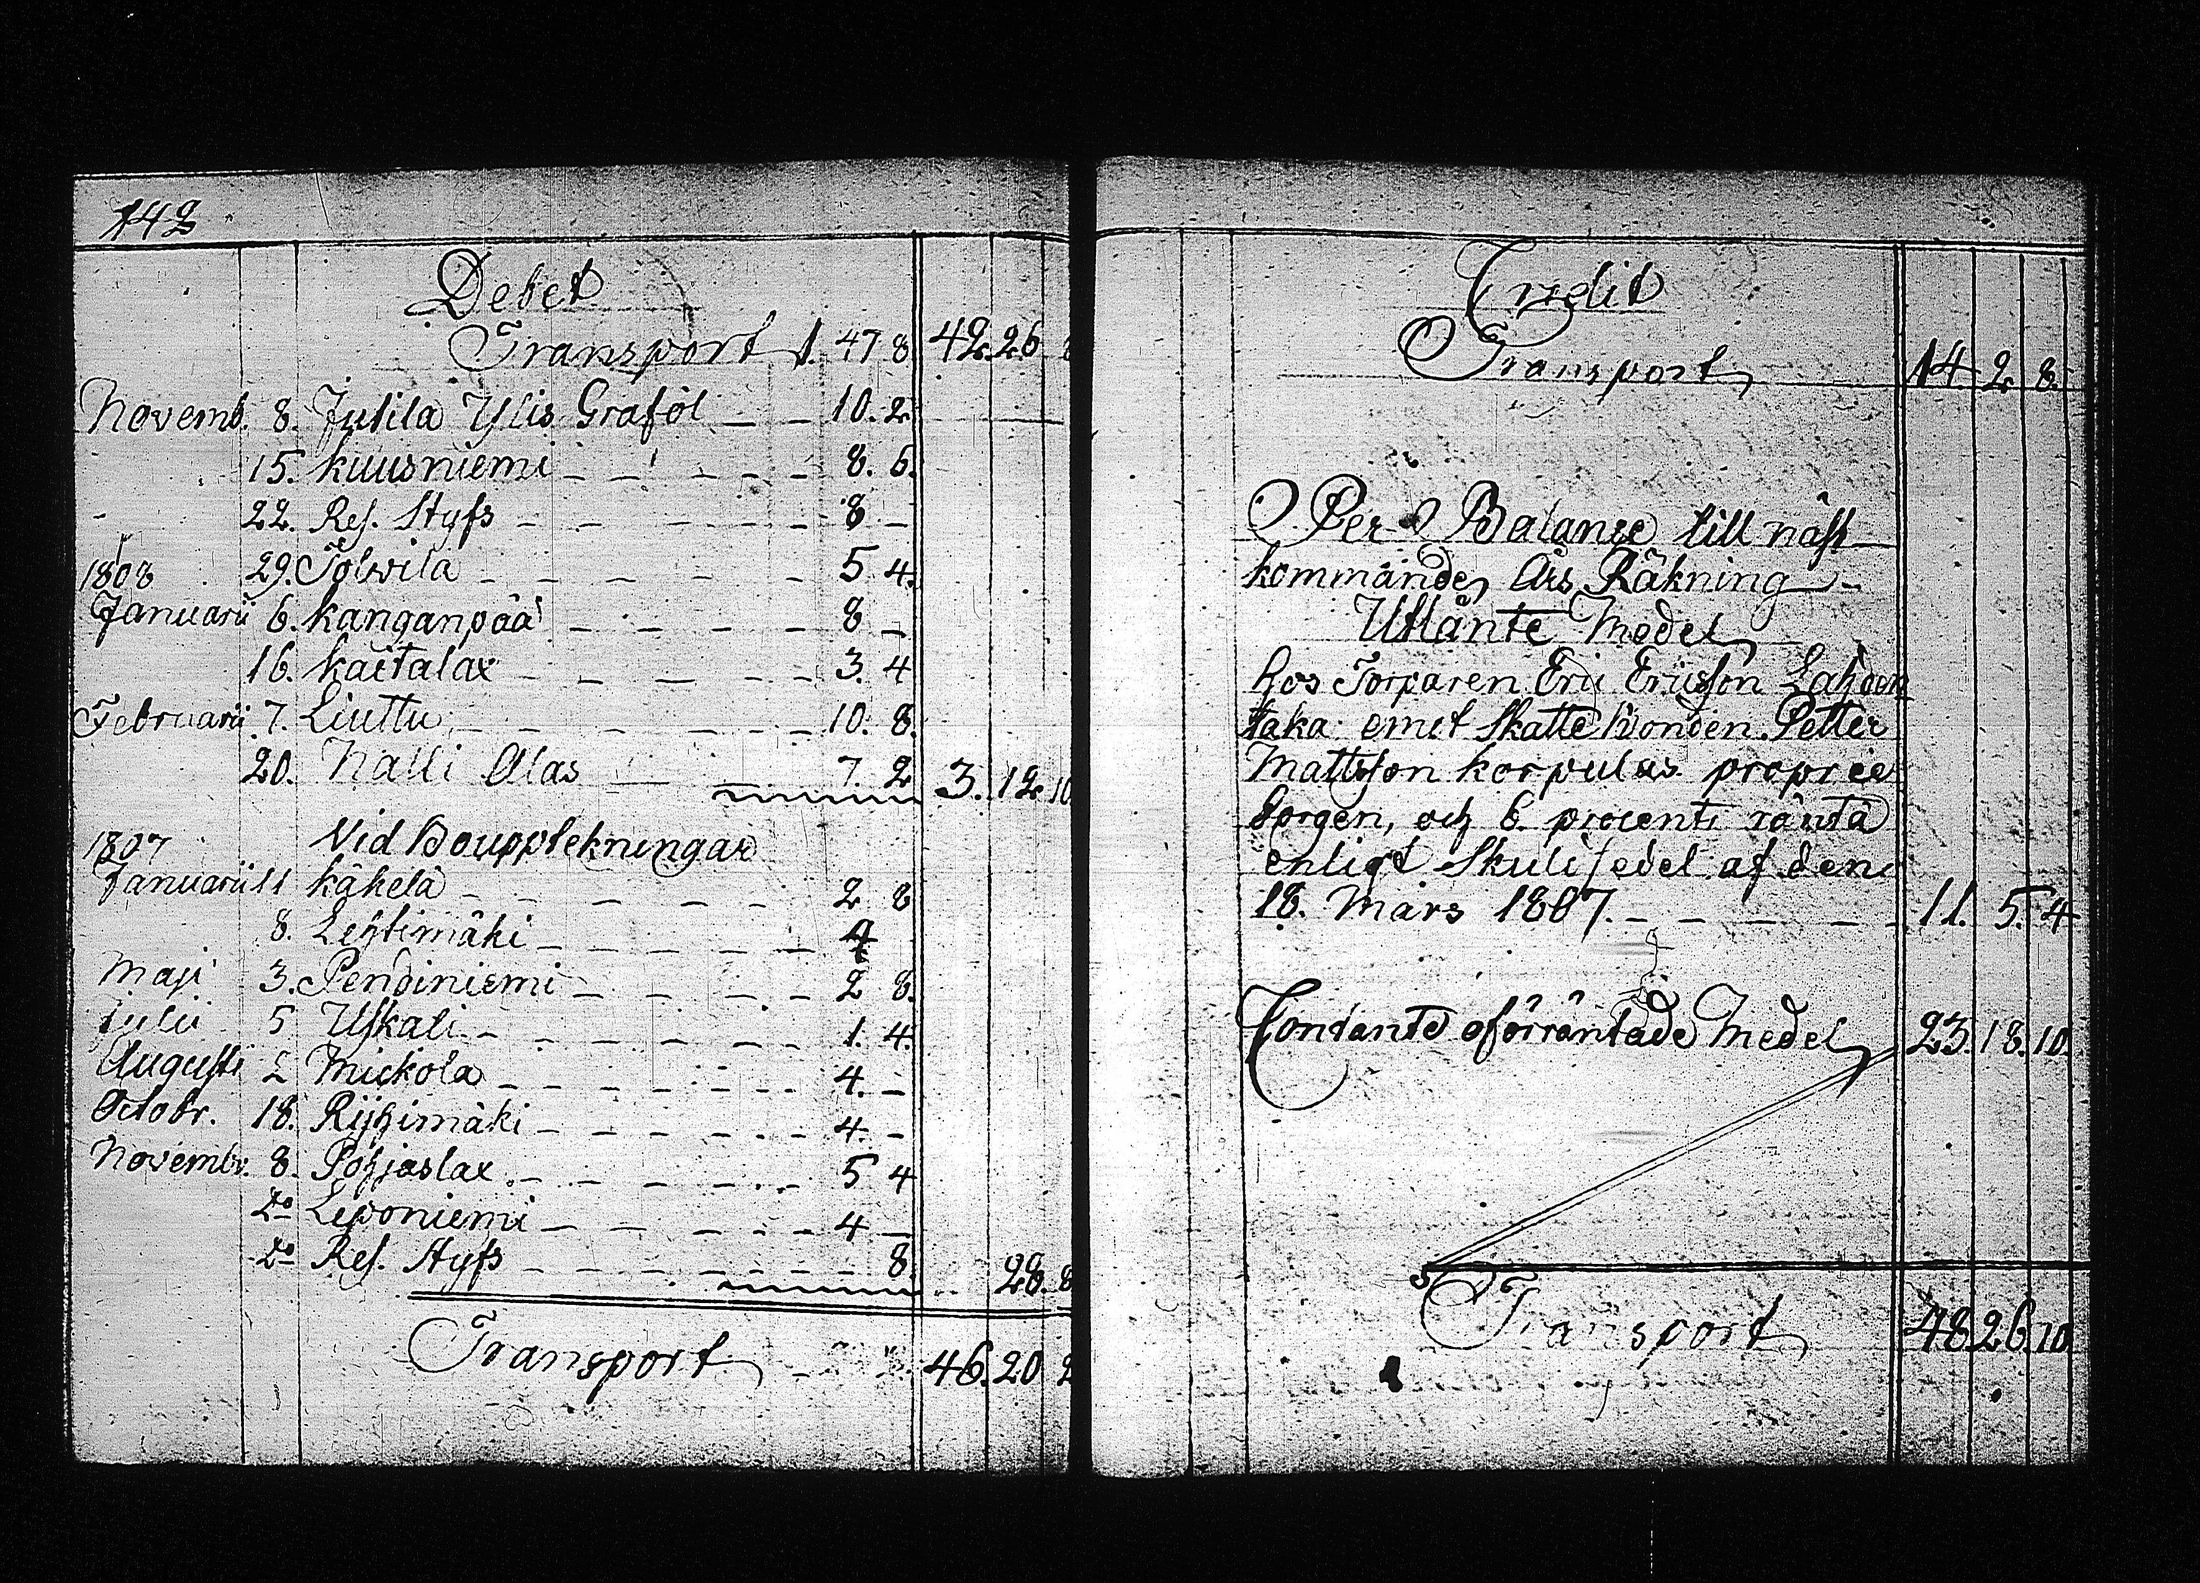 142
Debet
Transport 1. 47 8 42. 26
Novemb. 8. Jutila Ylis Graföl — — 10. 2
15. Kuusniemi — — — — — 8. 6.
22. Res. Styfs — — — — — 8 —
1808 29. Tolvila — — — — — 5 4.
Januarii 6. Kanganpää — — — — 8 —
16. Kaitalax — — — — — 3. 4
Februarii 7. Liuttu — — — — — 10. 8.
20. Nalli Alas — 7. 2 3. 12. 10
1807 Vid Bouppteckningar
Januarii 11 Kähelä — — — — — 2 8
8. Leytimäki — — — — 4
Maji 3. Pendiniemi — — — — 2 8.
Julii 5 Uskali — — — — — 1. 4.
Augusti 2 Mickola — — — — — 4. —
Octobr. 18. Riyhimäki — — — — — 4. —
Novembr. 8. Pohjaslax — — — — — 5 4
Do Leponiemi — — — — — 4 —
Do Res. Styfs — — — — — — 8. 28. 8
Transport 46. 20 2
Credit
Transport 14 2 8
Per Balance till näst
kommande Års Räkning
Utlånte Medel
hos Torparen Eric Ericsson Lahden
taka emot Skatte bonden Petter
Mattsson Korpulas proprie
borgen, och 6. procents ränta
enligt Skuldsedel af den
18. Mars 1807. — — — — — 11. 5. 4
Contante oförräntade Medel 23. 18. 10.
Transport 48. 26. 10